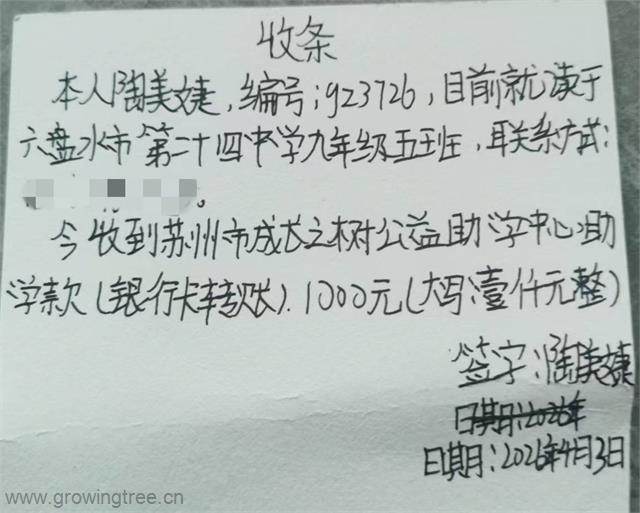 收条
本人陶美婕,编号:gz3726,目前就读于
六盘水市第二十四中学九年级五班,联系方式:
。
今收到苏州市成长之树公益助学中心助
学款(银行卡转账).1000元(大写:壹仟元整)
签字:陶美婕
日期:2026年
日期:2026年4月3日
www.growingtree.cn